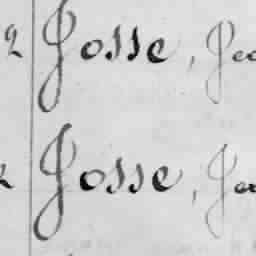 2 Josse, Jea
2 Josse, Jea